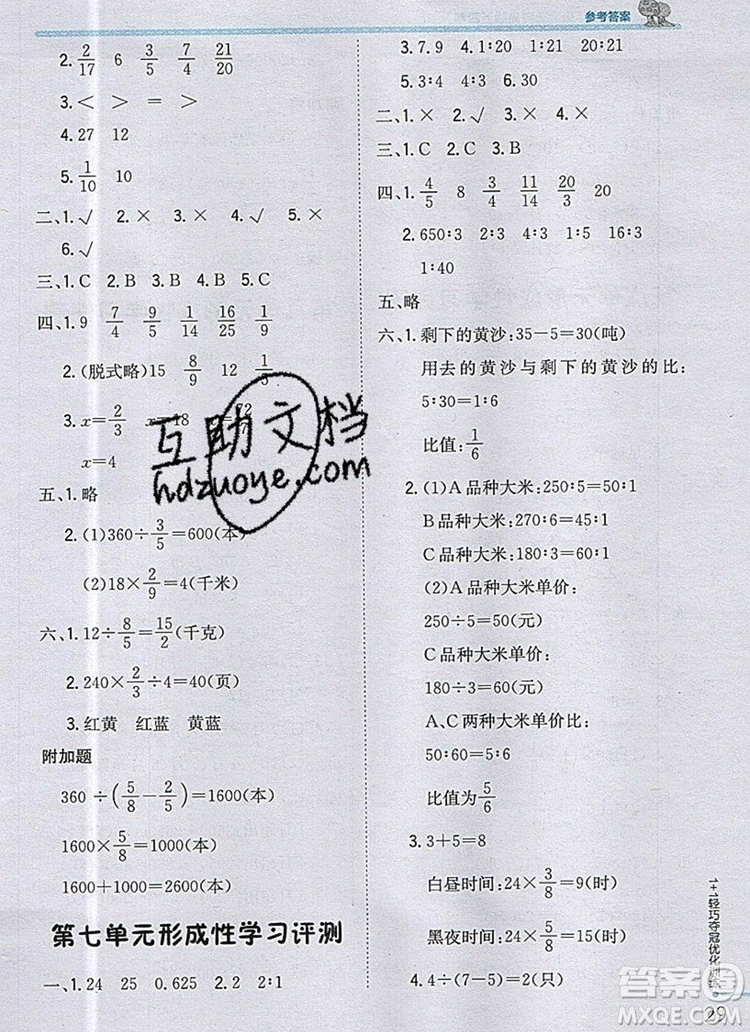 参考答案
2. 2/17 6 3/5 7/4 21/20
3. < > = >
4. 27 12
5. 1/10 10
二、1. √ 2. × 3. × 4. √ 5. ×
6. √
三、1. C 2. B 3. A 4. C
四、1. 9 7/4 9/7 1/14 16/25 1/9
2. (脱式略) 15 8/9 12
3. x=2/3 x=18
x=4
五、1. 略
2. (1) 360÷3/5=600(本)
(2) 18×2/9=4(千米)
六、1. 12÷8/5=15/2(千克)
2. 240×2/3÷4=40(页)
3. 红黄 红蓝 黄蓝
附加题
360÷(5/8-2/5)=1600(本)
1600×5/8=1000(本)
1600+1000=2600(本)
第七单元形成性学习评测
一、1. 24 25 0.625 2. 2 2∶1
3. 7. 9 4. 1∶20 19∶20
5. 3∶4 4∶3 6. 30
二、1. × 2. √ 3. × 4. ×
三、1. C 2. C 3. B
四、1. 4/5 8 3/4 11/14 20/3 20
2. 650∶3 7∶1 3∶2 16∶1
1∶40
五、略
六、1. 剩下的黄沙:35-5=30(吨)
用去的黄沙与剩下的黄沙的比:
5∶30=1∶6
比值:1/6
2. (1) A品种大米:250∶5=50∶1
B品种大米:270∶6=45∶1
C品种大米:180∶3=60∶1
(2) A品种大米单价:
250÷5=50(元)
C品种大米单价:
180÷3=60(元)
A、C两种大米单价比:
50∶60=5∶6
比值为5/6
3. 3+5=8
白昼时间:24×3/8=9(时)
黑夜时间:24×5/8=15(时)
4. 4÷(7-5)=2(只)
1+1轻巧夺冠优化训练
29
互助文档
hdzuoye.com
答案圈
MXQE.COM